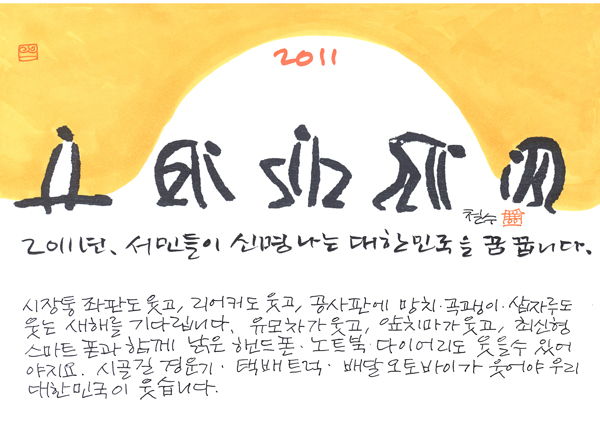 2011
철수
2011년, 서민들이 신명나는 대한민국을 꿈꿉니다.
시장통 좌판도 웃고, 리어커도 웃고, 공사판에 망치·곡괭이·삽자루도
웃는 새해를 기다립니다. 유모차가 웃고, 앞치마가 웃고, 최신형
스마트폰과 함께 낡은 핸드폰·노트북·다이어리도 웃을수 있어
야지요. 시골길 경운기·택배트럭·배달오토바이가 웃어야 우리
대한민국이 웃습니다.